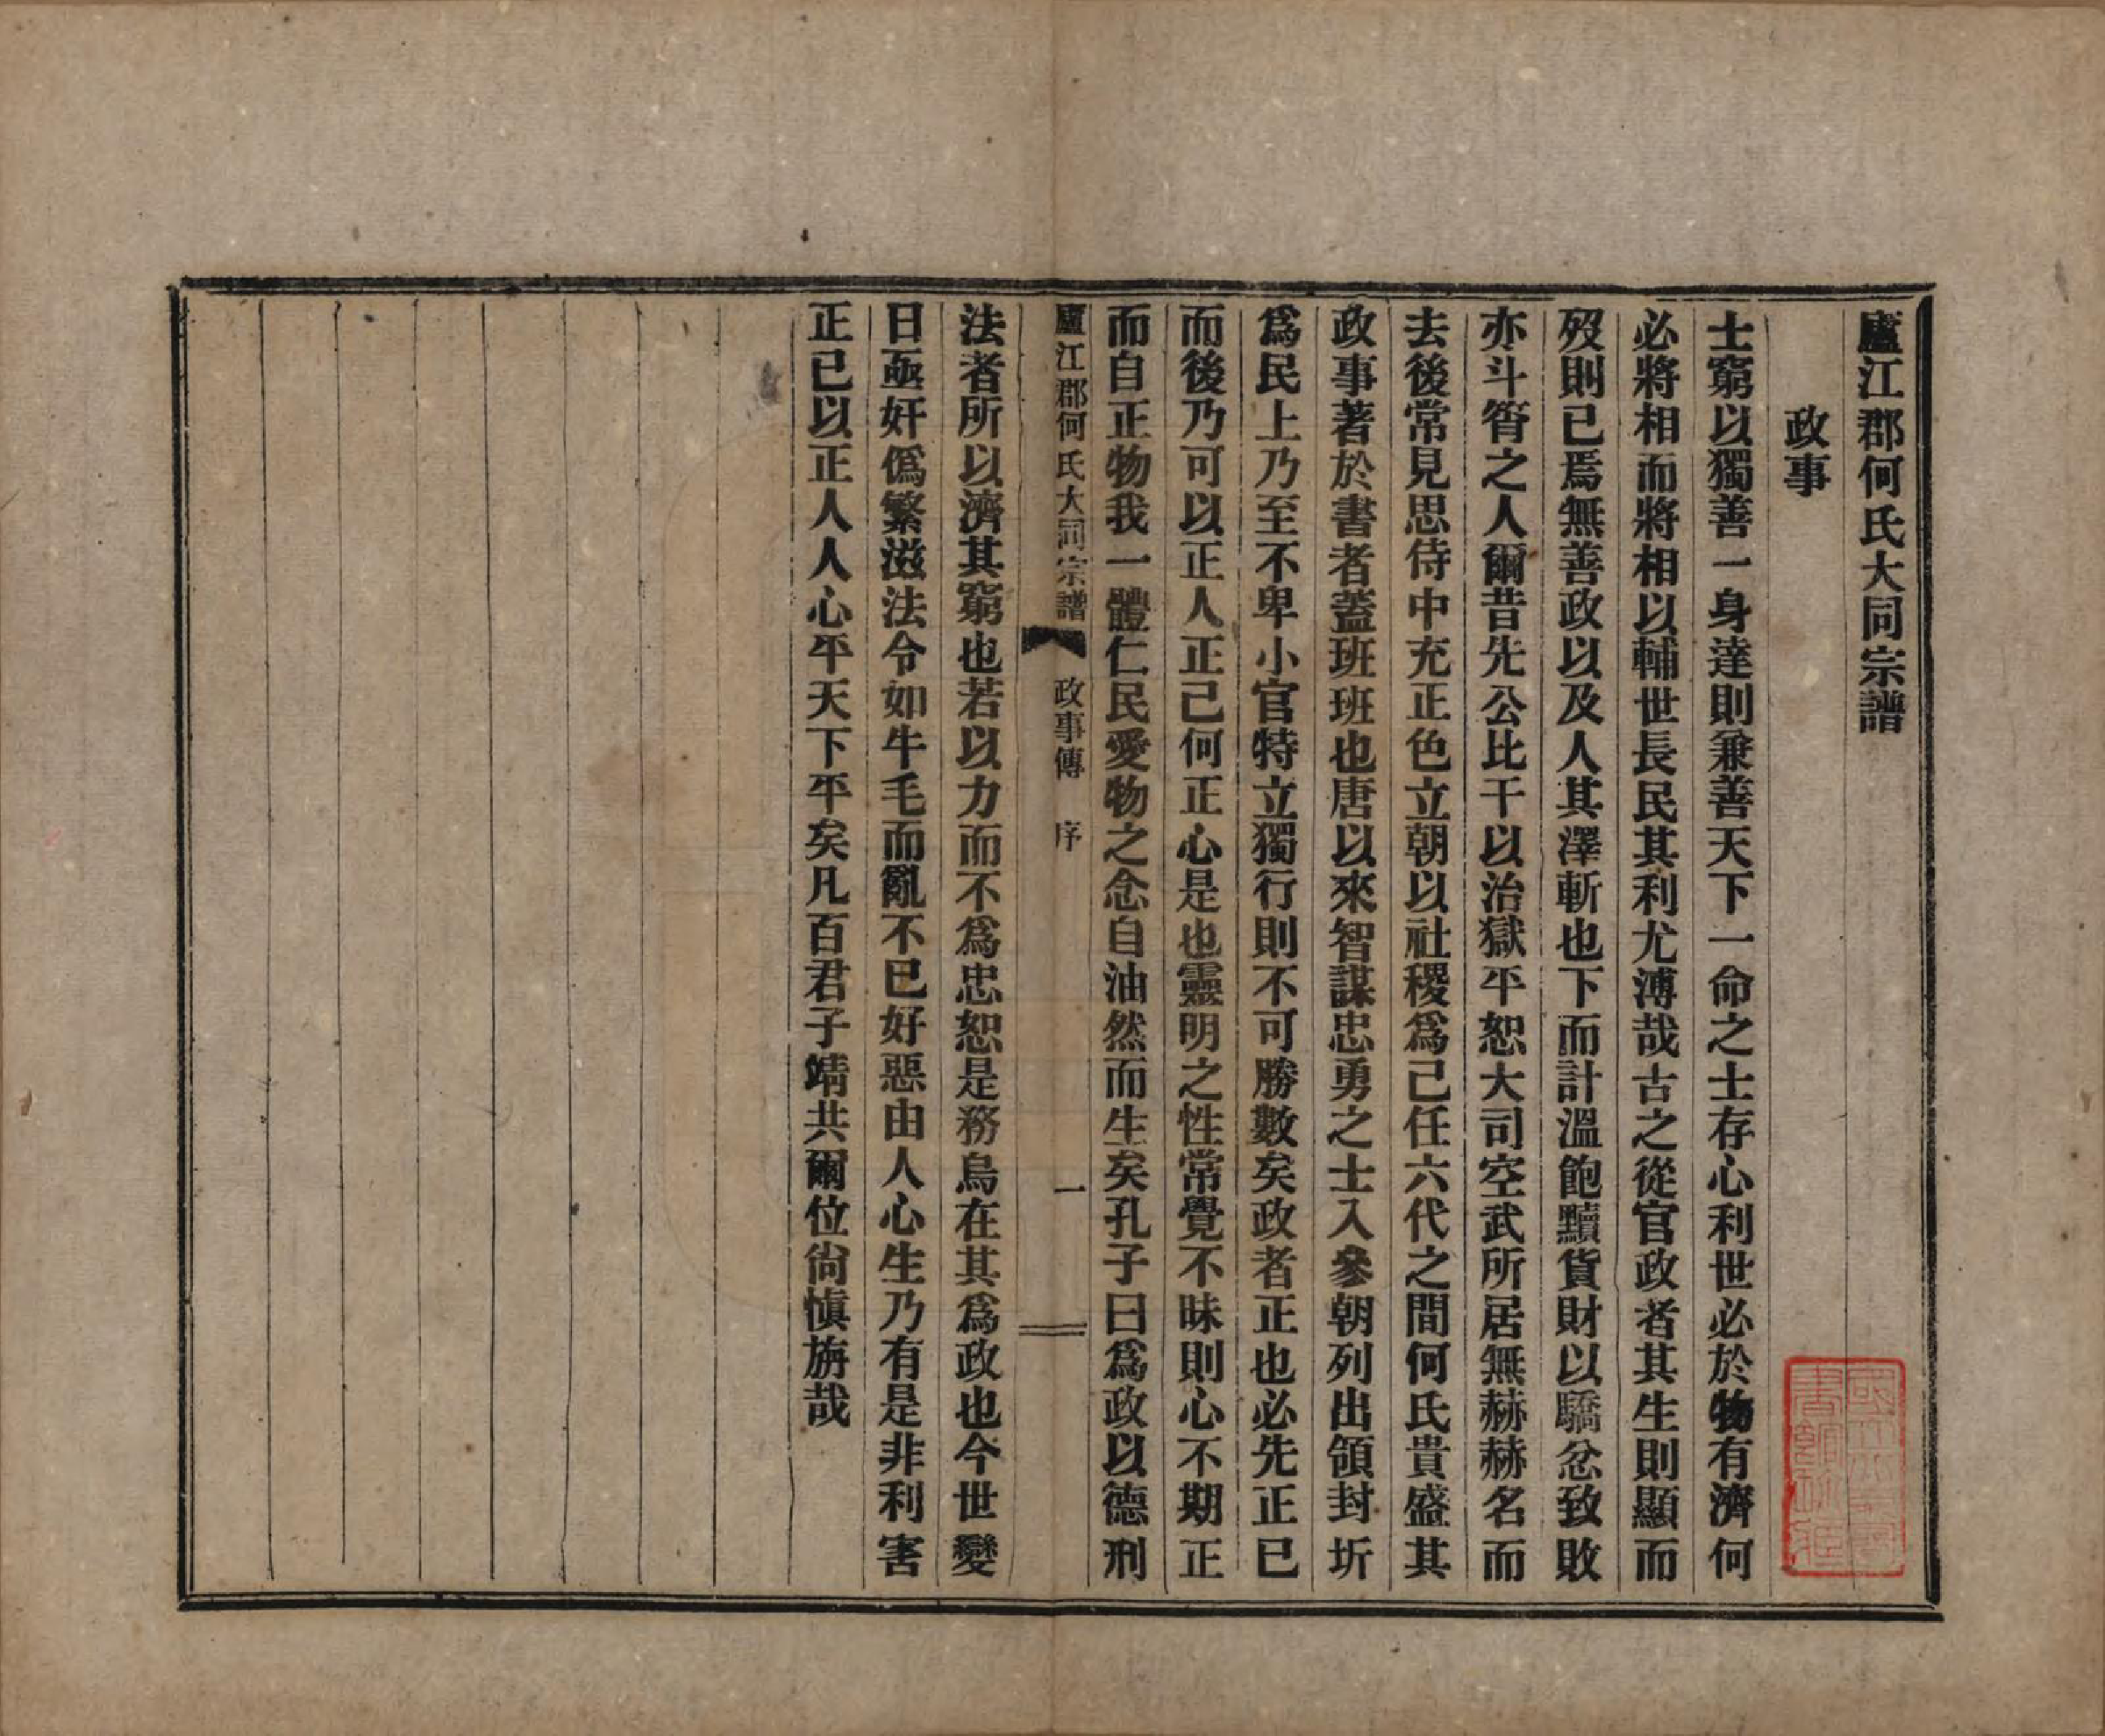 廬江郡何氏大同宗譜
政事
士窮以獨善一身達則兼善天下一命之士存心利世必於物有濟何
必將相而將相以輔世長民其利尤溥哉古之從官政者其生則顯而
歿則已焉無善政以及人其澤斬也下而計溫飽黷貨財以驕忿致敗
亦斗筲之人爾昔先公比干以治獄平恕大司空武所居無赫赫名而
去後常見思侍中充正色立朝以社稷爲己任六代之間何氏貴盛其
政事著於書者蓋班班也唐以來智謀忠勇之士入參朝列出領封圻
爲民上乃至不卑小官特立獨行則不可勝數矣政者正也必先正已
而後乃可以正人正己何正心是也靈明之性常覺不昧則心不期正
而自正物我一體仁民愛物之念自油然而生矣孔子曰爲政以德刑
廬江郡何氏大同宗譜 政事傳 序 一
法者所以濟其窮也若以力而不爲忠恕是務烏在其爲政也今世變
日亟奸僞繁滋法令如牛毛而亂不已好惡由人心生乃有是非利害
正已以正人人心平天下平矣凡百君子靖共爾位尙愼旃哉